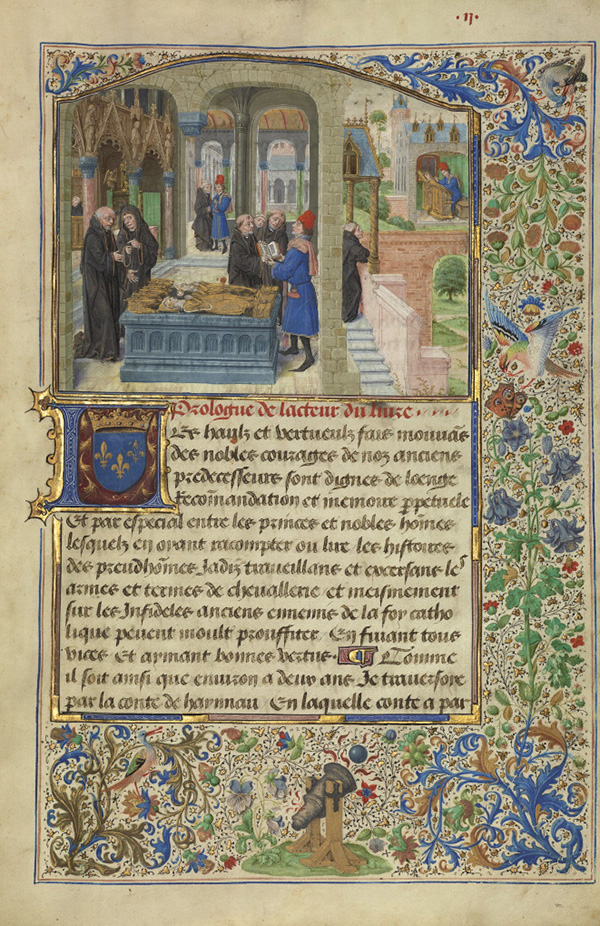 .ij.
Prologue de lacteur du liure
Les haulz et vertueulz fais mouuãs
des nobles courages de noz anciens
predecesseurs sont dignes de loenge
Recõmandation et memore ꝑpetuele
Et par especial entre les princes et nobles hõmes
lesquelz en oyant racompter ou lire les histoires
des preudhõmes Jadiz traueillans et excersans les
armes et termes de cheuallerie et meismement
sur les Infideles anciens ennemis de la foy catho
lique peuent moult prouffiter. En fuiant tous
vices Et aymant bonnes vertus. ¶ Comme
il soit ainsi que enuiron a deux ans Je trauersoye
par la conte de haynnau En laquelle conte a par